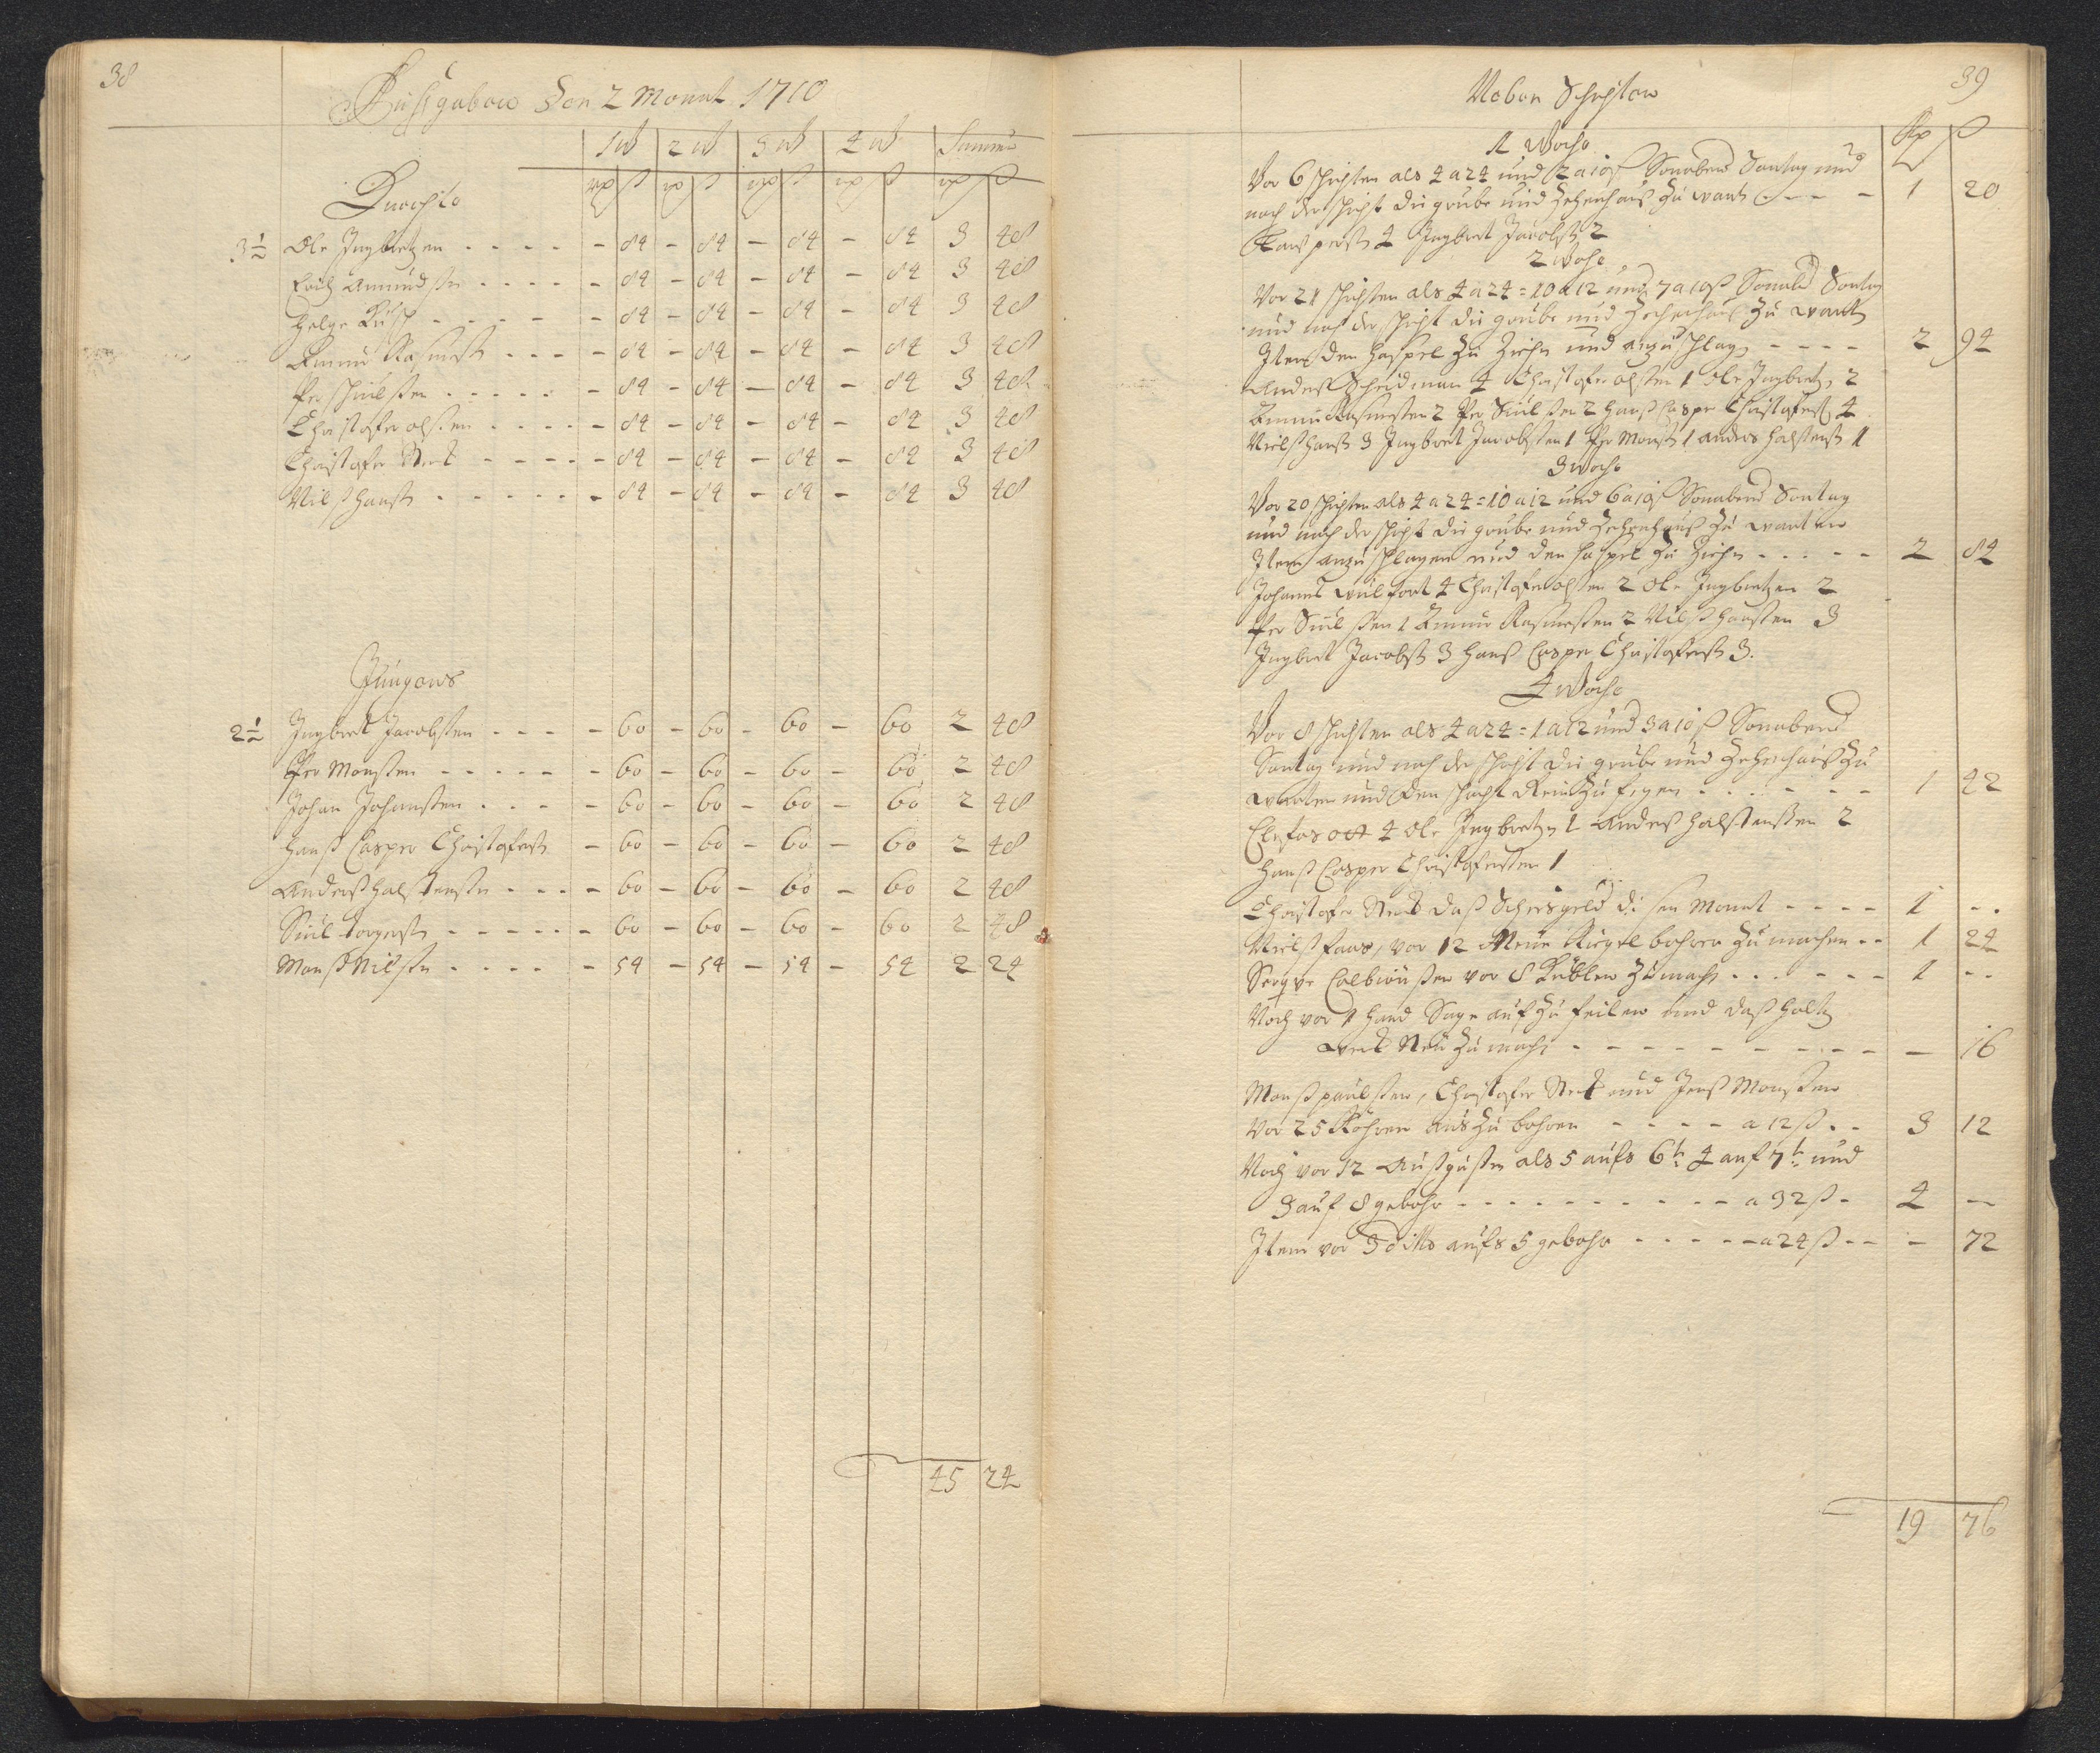 38
Außgaben den 2 Monat 1710
1 W 2 W 3 W 4 W Summa
rp ß rp ß rp ß rp ß rp ß
Knechte
3½ Ole Jngbretzen - - - - 84 - 84 - 84 - 84 3 48
Erich Amundßn - - - - 84 - 84 - 84 - 84 3 48
Helge - - - - 84 - 84 - 84 - 84 3 48
Rasmuß - - - - 84 - 84 - 84 - 84 3 48
Per Siulßen - - - - 84 - 84 - 84 - 84 3 48
Christofer olßen - - - - 84 - 84 - 84 - 84 3 48
Christofer - - - - 84 - 84 - 84 - 84 3 48
Nilß Hanß - - - - 84 - 84 - 84 - 84 3 48
Jungens
2½ Jngbret Jacobßen - - - - 60 - 60 - 60 - 60 2 48
Per Monßen - - - - 60 - 60 - 60 - 60 2 48
Johan Johanßen - - - - 60 - 60 - 60 - 60 2 48
Hanß Casper Christoferß - 60 - 60 - 60 - 60 2 48
Anderß Halstenßn - - - - 60 - 60 - 60 - 60 2 48
Siul Torgerß - - - - 60 - 60 - 60 - 60 2 48
Monß Nilßn - - - - 54 - 54 - 54 - 54 2 24
45 24
39
Neben Schichten
Rp ß
1 Woche
Vor 6 schichten als 4 a 24 und 2 a 10 ß Sonabend Sontag und
nach der schicht die grube und Zechenhauß zu wart - - - 1 20
4 Jngbret Jacobß 2
2 Woche
Vor 21 schichten als 4 a 24 = 10 a 12 und 7 a 10 ß Sonabd Sontag
und nach der schicht die grube und Zechenhauß zu wart
Jtem den Haspel zu Ziehn und anzuschlagn - - - - 2 94
Anderß Scheidman 4 Christofer olßen 1 Ole Jngbretz 2
Rasmußen 2 Per Siulßen 2 Hanß Casper Christoferß 4
Nielß Hanß 3 Jngbret Jacobßen 1 Per Monß 1 Anders Halstenß 1
3 Woche
Vor 20 schichten als 4 a 24 = 10 a 12 und 6 a 10 ß Sonabend Sontag
und nach der schicht die grube und Zechenhauß zu warten
Jtem anzuschlagen und den Haspel zu Ziehn - - - - - 2 84
Johanes Wulfort 4 Christofer olßen 2 Ole Jngbretzen 2
Per Siulßen 1 Rasmußen 2 Nilß Hanßen 3
Jngbret Jacobß 3 Hanß Casper Christoferß 3.
4 Woche
Vor 8 schichten als 4 a 24 = 1 a 12 und 3 a 10 ß Sonabend
Sontag und nach der schicht die grube und Zechenhauß zu
warten und den schacht Rein zu fegen - - - - - - 1 42
4 Ole Jngbretzn 1 Anderß Halstenßen 2
Hanß Casper Christoferßen 1
Christofer daß Scheergeld disen Monat - - - - 1 - -
Nielß Faar, vor 12 Neue Kugelbohrer zu machen - - 1 24
vor 8 Kublen zu mach - - - - - - 1 - -
Noch vor 1 Hand Sage auf zu feilen und daß Holtz
werk Neu zu mach - - - - - - - - - - - 16
Monß paulßen, Christofer und Jenß Monßen
Vor 25 Röhren aus zu bohren - - - - a 12 ß - - 3 12
Noch vor 12 Außgüßn als 5 aufs 6te 4 auf 7te und
3 auf 8 gebohr - - - - - - - - - a 32 ß - 4 -
Jtem vor 3 ditto aufs 5 gebohr - - - - - a 24 ß - - - 72
19 76